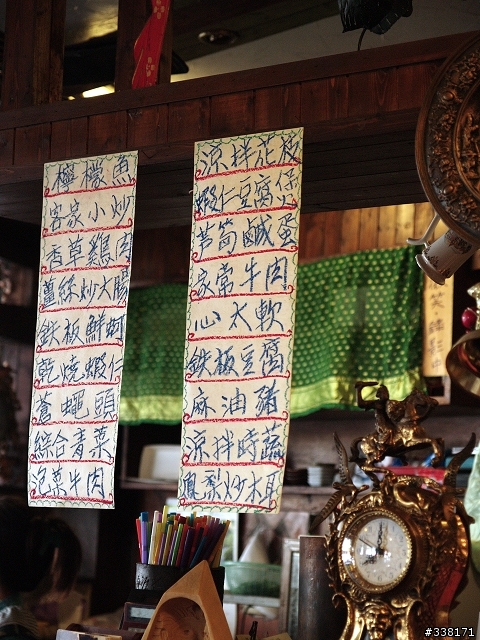 檸檬魚
客家小炒
香草雞肉
薑絲炒大腸
鉄板鮮蚵
乾燒蝦仁
蒼蠅頭
綜合青菜
泡菜牛肉
涼拌花枝
蝦仁豆腐煲
芦筍鹹蛋
家常牛肉
心太軟
鉄板豆腐
麻油豬
涼拌時蔬
鳳梨炒木耳
#338171